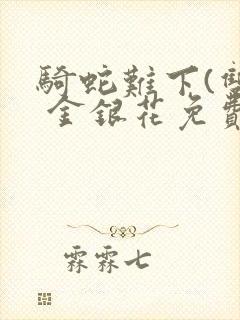 騎蛇難下(雙
金銀花免費
霖霖七